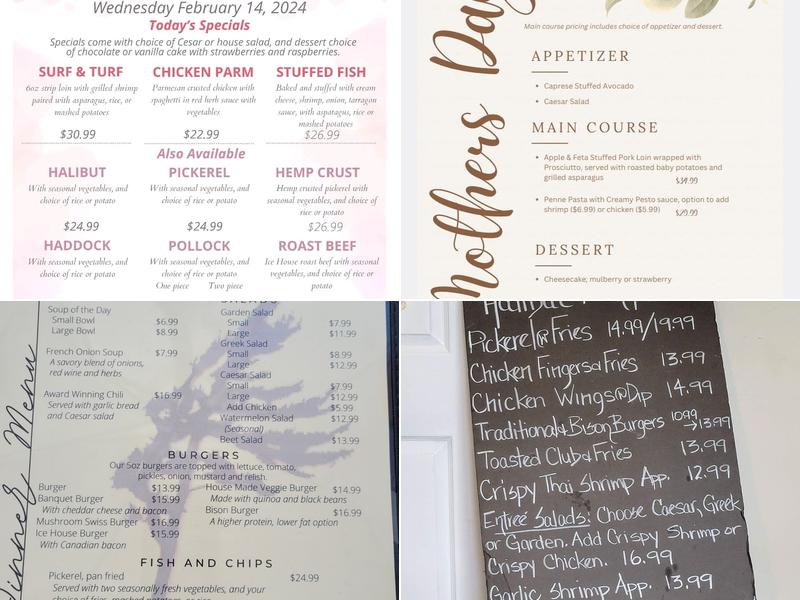 Wednesday February 14, 2024
Today's Specials
Specials come with choice of Cesar or house salad, and dessert choice
of chocolate or vanilla cake with strawberries and raspberries.
SURF & TURF
6oz strip loin with grilled shrimp
paired with asparagus, rice, or
mashed potatoes
$30.99
CHICKEN PARM
Parmesan crusted chicken with
spaghetti in red herb sauce with
vegetables
$22.99
STUFFED FISH
Baked and stuffed with cream
cheese, shrimp, onion, tarragon
sauce, with asparagus, rice or
mashed potatoes
$26.99
Also Available
HALIBUT
With seasonal vegetables, and
choice of rice or potato
$24.99
PICKEREL
With seasonal vegetables, and
choice of rice or potato
$24.99
HEMP CRUST
Hemp crusted pickerel with
seasonal vegetables, and choice of
rice or potato
$26.99
HADDOCK
With seasonal vegetables, and
choice of rice or potato
POLLOCK
With seasonal vegetables, and
choice of rice or potato
One piece Two piece
ROAST BEEF
Ice House roast beef with seasonal
vegetables, and choice of rice or
potato
Mothers Day
Main course pricing includes choice of appetizer and dessert.
APPETIZER
• Caprese Stuffed Avocado
• Caesar Salad
MAIN COURSE
• Apple & Feta Stuffed Pork Loin wrapped with
Prosciutto, served with roasted baby potatoes and
grilled asparagus $34.99
• Penne Pasta with Creamy Pesto sauce, option to add
shrimp ($6.99) or chicken ($5.99) $29.99
DESSERT
• Cheesecake; mulberry or strawberry
Dinner Menu
Soup of the Day
Small Bowl $6.99
Large Bowl $8.99
French Onion Soup $7.99
A savory blend of onions,
red wine and herbs
Award Winning Chili $16.99
Served with garlic bread
and Caesar salad
SALADS
Garden Salad
Small $7.99
Large $11.99
Greek Salad
Small $8.99
Large $12.99
Caesar Salad
Small $7.99
Large $12.99
Add Chicken $5.99
Watermelon Salad $12.99
(Seasonal)
Beet Salad $13.99
BURGERS
Our 5oz burgers are topped with lettuce, tomato,
pickles, onion, mustard and relish.
Burger $13.99
Banquet Burger $15.99
With cheddar cheese and bacon
Mushroom Swiss Burger $16.99
Ice House Burger $15.99
With Canadian bacon
House Made Veggie Burger $14.99
Made with quinoa and black beans
Bison Burger $16.99
A higher protein, lower fat option
FISH AND CHIPS
Pickerel, pan fried $24.99
Served with two seasonally fresh vegetables, and your
choice of fries, mashed potatoes, or rice
Pickerel @ Fries 14.99/19.99
Chicken Fingers @ Fries 13.99
Chicken Wings @ Dip 14.99
Traditional & Bison Burgers 10.99 → 13.99
Toasted Club @ Fries 13.99
Crispy Thai Shrimp App. 12.99
Entrée Salads: Choose Caesar, Greek
or Garden. Add Crispy Shrimp or
Crispy Chicken. 16.99
Garlic Shrimp App. 13.99